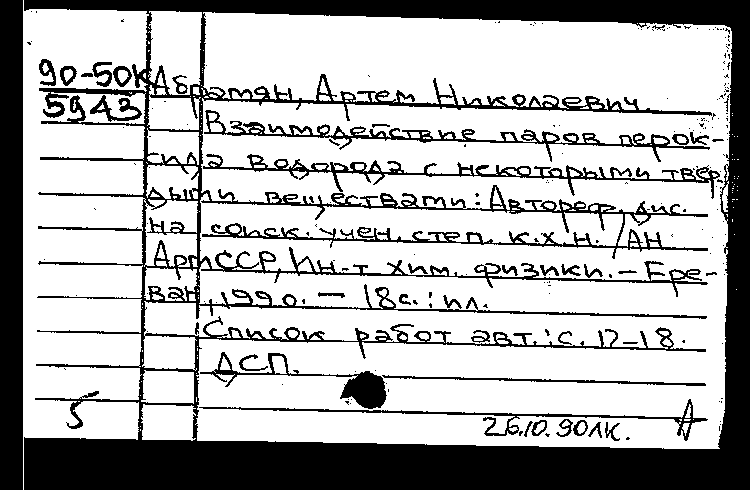 90-50К Абрамян, Артем Николаевич.
5943
Взаимодействие паров перок-
сида водорода с некоторыми твер
дыми веществами: Автореф. дис.
на соиск. учен. степ. к.х.н. / АН
АрмССР, Ин-т хим. физики. – Ере-
ван, 1990. – 18с.: ил.
Список работ авт.: с. 17-18.
ДСП.
5
26.10.90лк. А